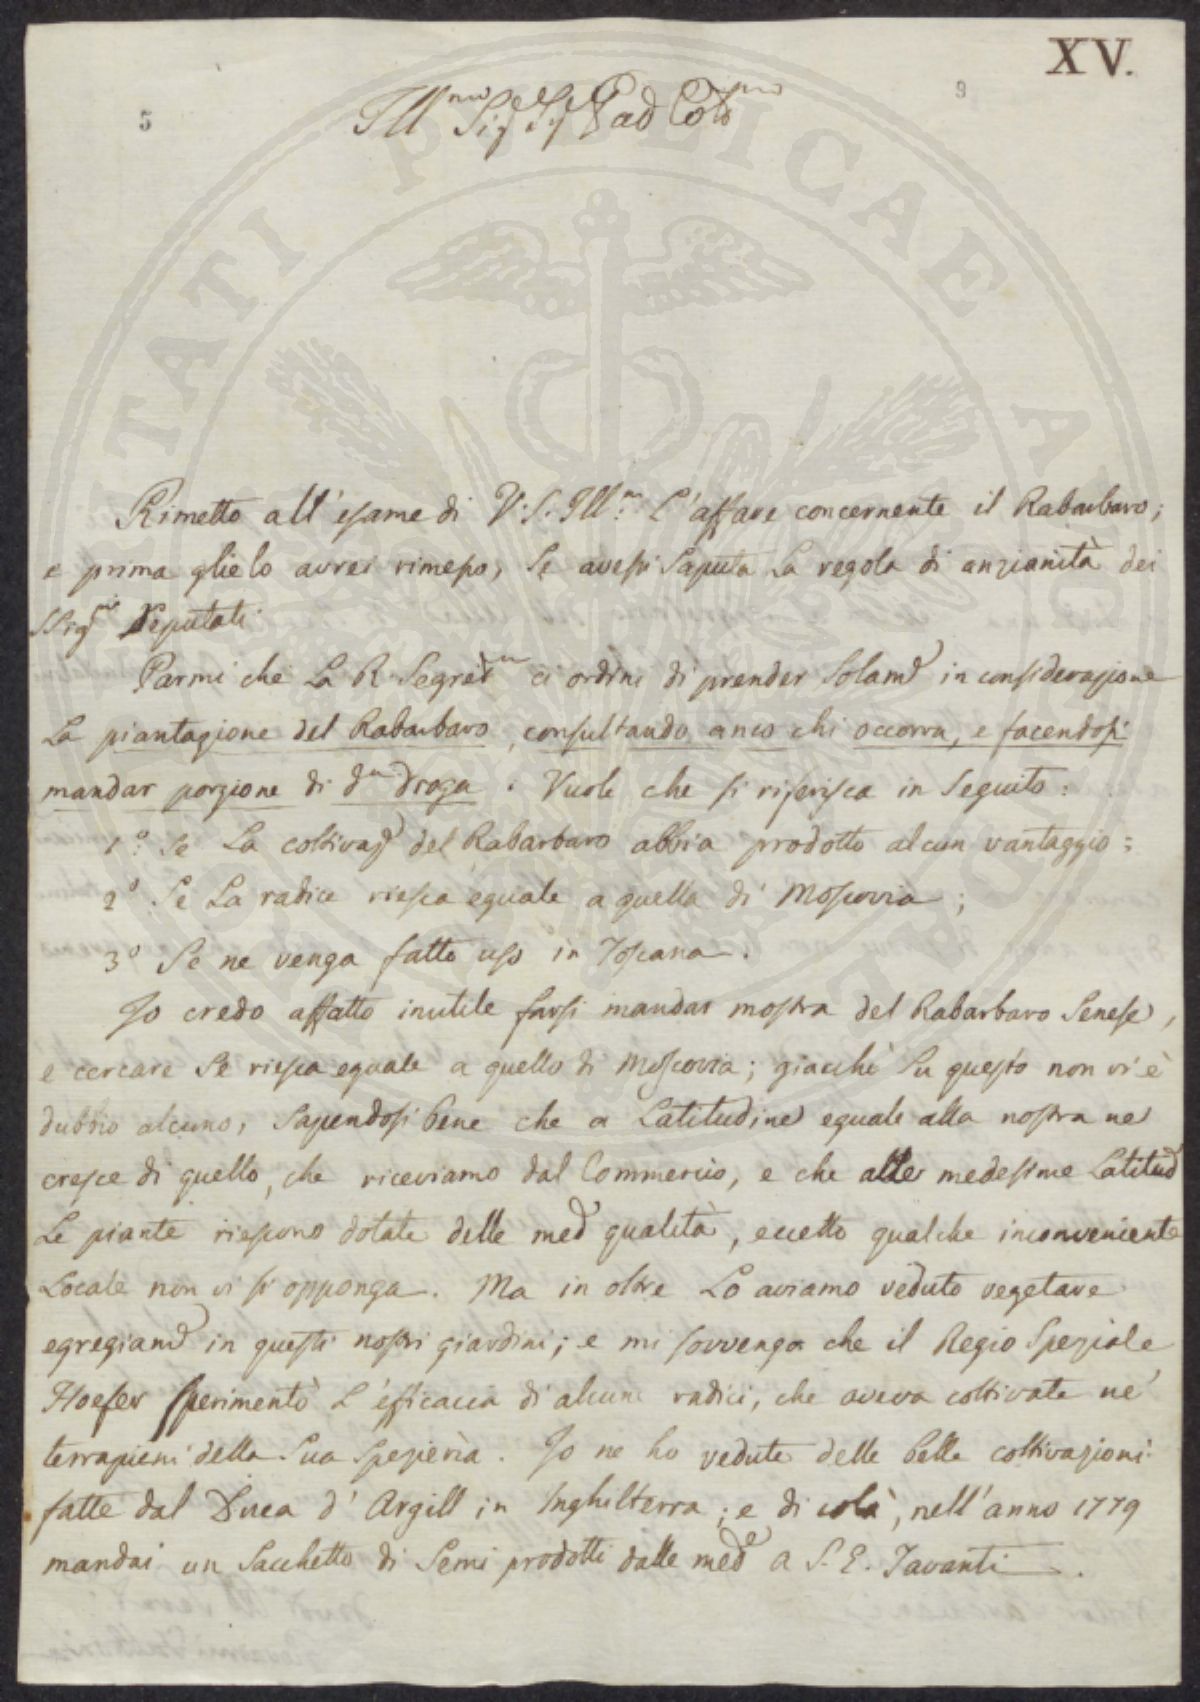 XV.
5
9
Ill.mo Sig.e Sig.e Pad Col.mo
Rimetto all'esame di V.S. Ill.ma L'affare concernente il Rabarbaro;
e prima glielo avrei rimesso, Se avessi Saputa La regola di anzianità dei
SSig.ri Deputati.
Parmi che La R. Segret.ria ci ordini di prender Solam.e in considerazione
La piantagione del Rabarbaro, consultando anco chi occorra, e facendosi
mandar porzione di d.ta droga. Vuole che si riferisca in Seguito:
1.° Se La coltivaz.e del Rabarbaro abbia prodotto alcun vantaggio;
2.° Se La radice riesca eguale a quella di Moscovia;
3.° Se ne venga fatto uso in Toscana.
Io credo affatto inutile farsi mandar mostra del Rabarbaro Senese,
e cercare Se riesca eguale a quello di Moscovia; giacchè Su questo non vi è
dubbio alcuno, Sapendosi bene che a Latitudine eguale alla nostra ne
cresce di quello, che riceviamo dal Commercio, e che alle medesime Latitud.e
Le piante riescono dotate delle med.e qualità, eccetto qualche inconveniente
Locale non vi si opponga. Ma in oltre Lo aviamo veduto vegetare
egregiam.e in questi nostri giardini; e mi sovvengo che il Regio Speziale
Hoefer Sperimentò L'efficacia di alcune radici, che aveva coltivate ne'
terrapieni della Sua Spezierìa. Io ne ho vedute delle belle coltivazioni
fatte dal Duca d'Argill in Inghilterra; e di colà, nell'anno 1779
mandai un Sacchetto di Semi prodotti dalle med.e a S. E. Tavanti.
PUBLICAE